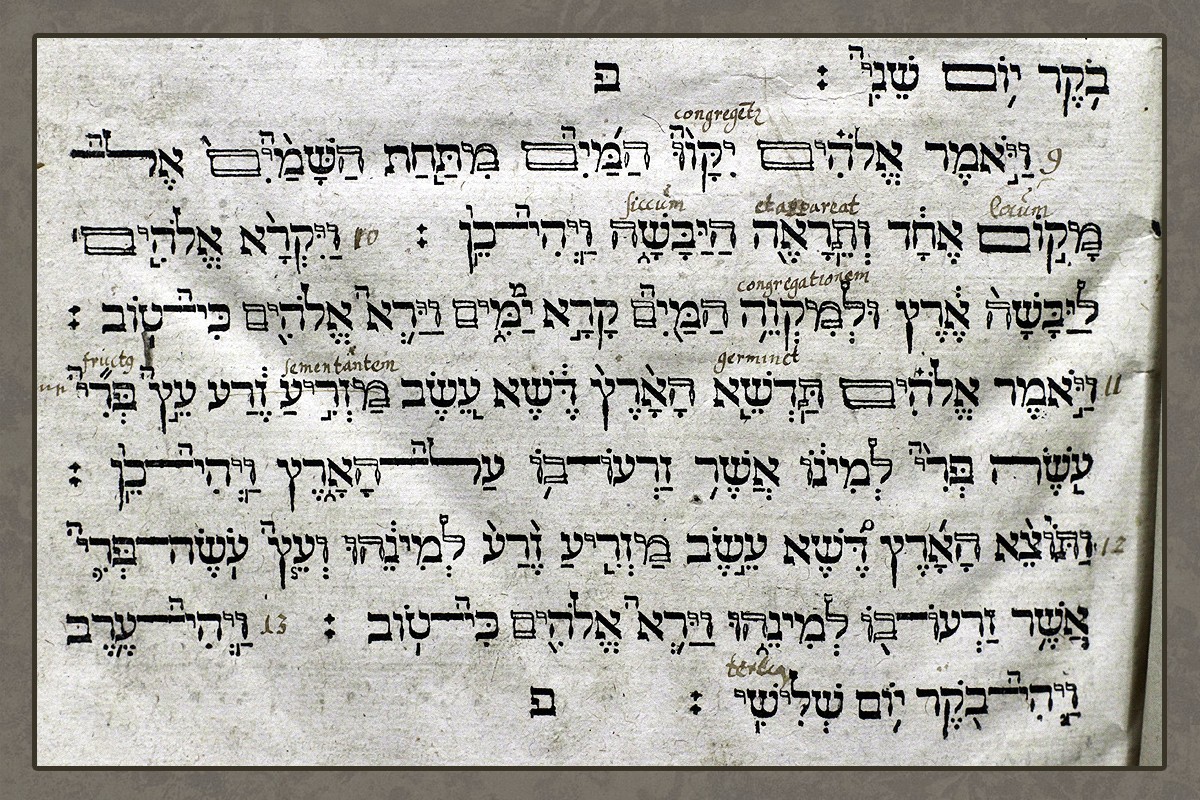 בֹקֶר יוֹם שֵׁנִי ׃ פ
congregetz
9 וַיֹּאמֶר אֱלֹהִים יִקָּווּ הַמַּיִם מִתַּחַת הַשָּׁמַיִם אֶל־
siccum et appareat locum
מָקוֹם אֶחָד וְתֵרָאֶה הַיַּבָּשָׁה וַיְהִי־כֵן ׃ 10 וַיִּקְרָא אֱלֹהִים
congregationem
לַיַּבָּשָׁה אֶרֶץ וּלְמִקְוֵה הַמַּיִם קָרָא יַמִּים וַיַּרְא אֱלֹהִים כִּי־טוֹב ׃
sementantem germinet
11 וַיֹּאמֶר אֱלֹהִים תַּדְשֵׁא הָאָרֶץ דֶּשֶׁא עֵשֶׂב מַזְרִיעַ זֶרַע עֵץ פְּרִי
עֹשֶׂה פְּרִי לְמִינוֹ אֲשֶׁר זַרְעוֹ־בוֹ עַל־הָאָרֶץ וַיְהִי־כֵן ׃
12 וַתּוֹצֵא הָאָרֶץ דֶּשֶׁא עֵשֶׂב מַזְרִיעַ זֶרַע לְמִינֵהוּ וְעֵץ עֹשֶׂה־פְּרִי
אֲשֶׁר זַרְעוֹ־בוֹ לְמִינֵהוּ וַיַּרְא אֱלֹהִים כִּי־טוֹב ׃ 13 וַיְהִי־עֶרֶב
וַיְהִי־בֹקֶר יוֹם שְׁלִישִׁי ׃ פ